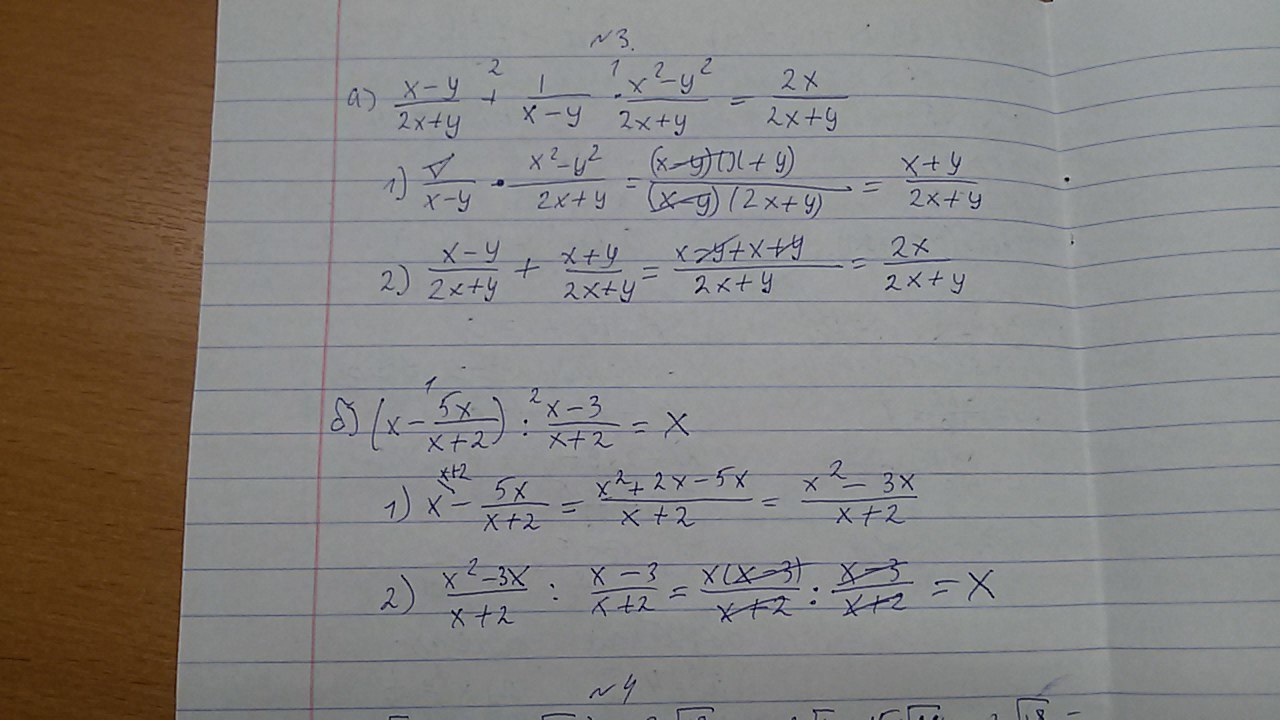 №3.
а) (x-y)/(2x+y) +² 1/(x-y) ·¹ (x²-y²)/(2x+y) = 2x/(2x+y)
1) 1/(x-y) · (x²-y²)/(2x+y) = (x-y)(x+y)/(x-y)(2x+y) = (x+y)/(2x+y)
2) (x-y)/(2x+y) + (x+y)/(2x+y) = (x-y+x+y)/(2x+y) = 2x/(2x+y)
б) (x -¹ 5x/(x+2)) :² (x-3)/(x+2) = x
1) x\x+2 - 5x/(x+2) = (x²+2x-5x)/(x+2) = (x²-3x)/(x+2)
2) (x²-3x)/(x+2) : (x-3)/(x+2) = x(x-3)/(x+2) : (x-3)/(x+2) = x
№4